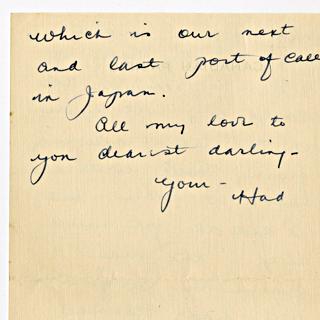 which is our next
and last port of call
in Japan.
All my love to
you dearest darling -
Your -
Had